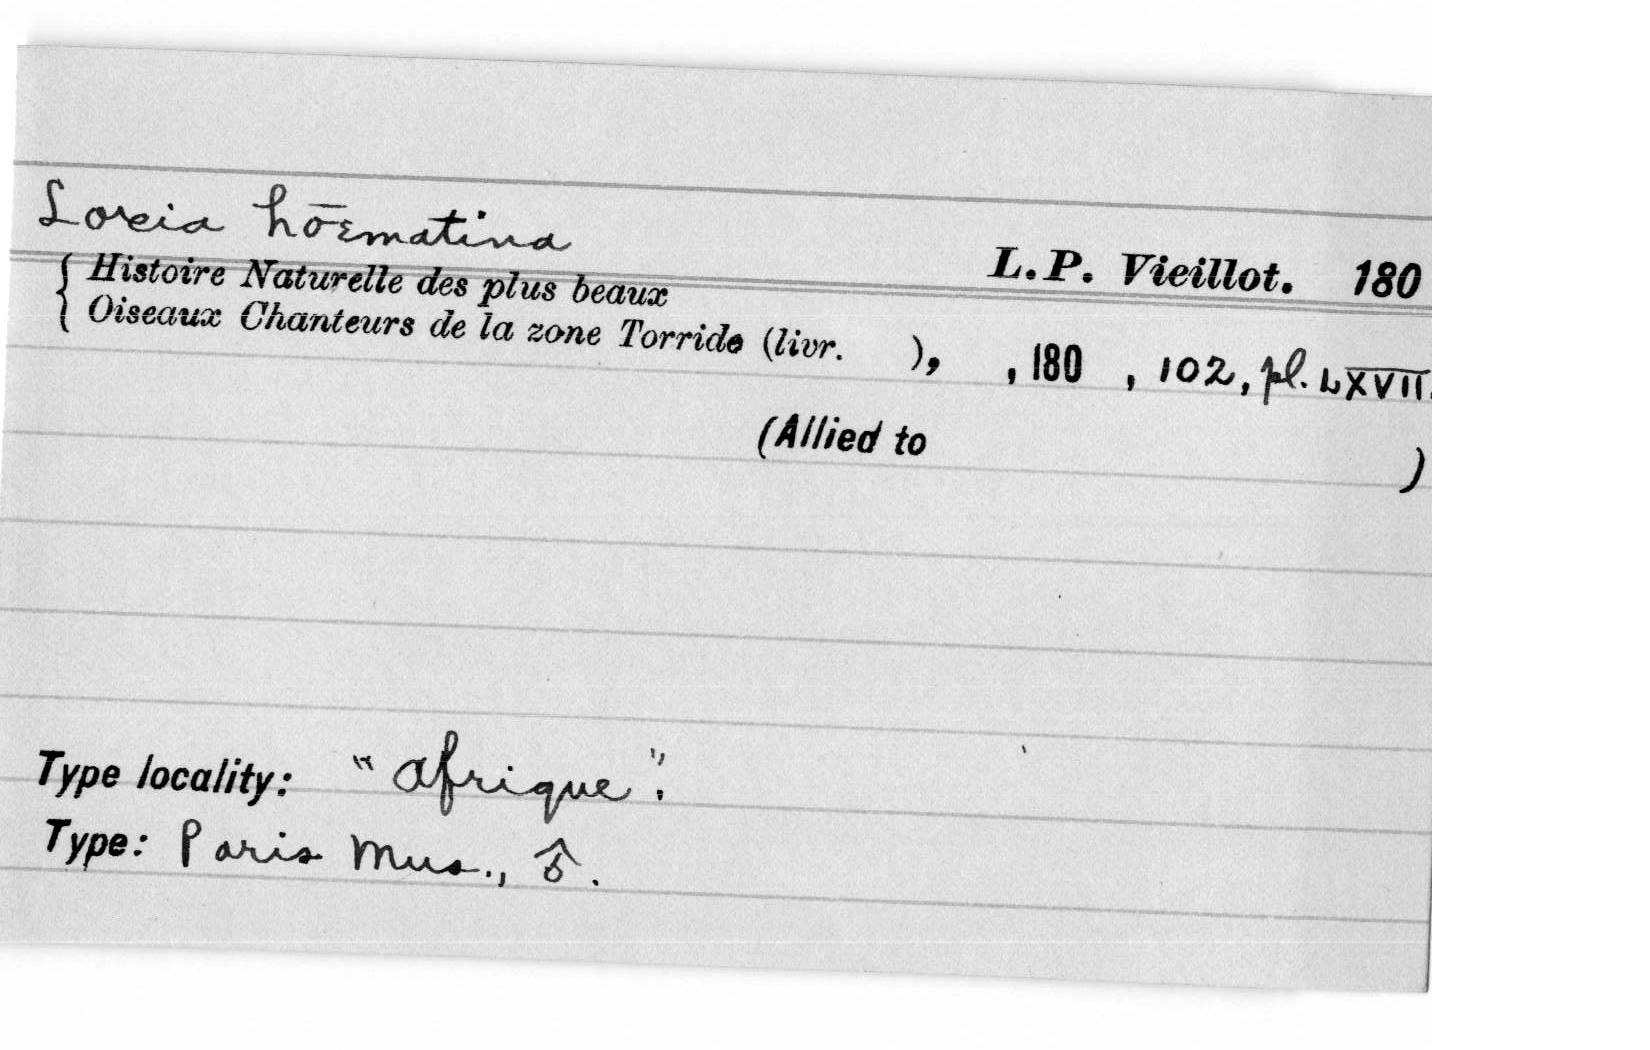 Loxia hōematina
L.P. Vieillot. 180
{ Histoire Naturelle des plus beaux
Oiseaux Chanteurs de la zone Torride (livr. ), , 180 , 102, pl. LXVII.
(Allied to )
Type locality: "Afrique".
Type: Paris Mus., ♂.